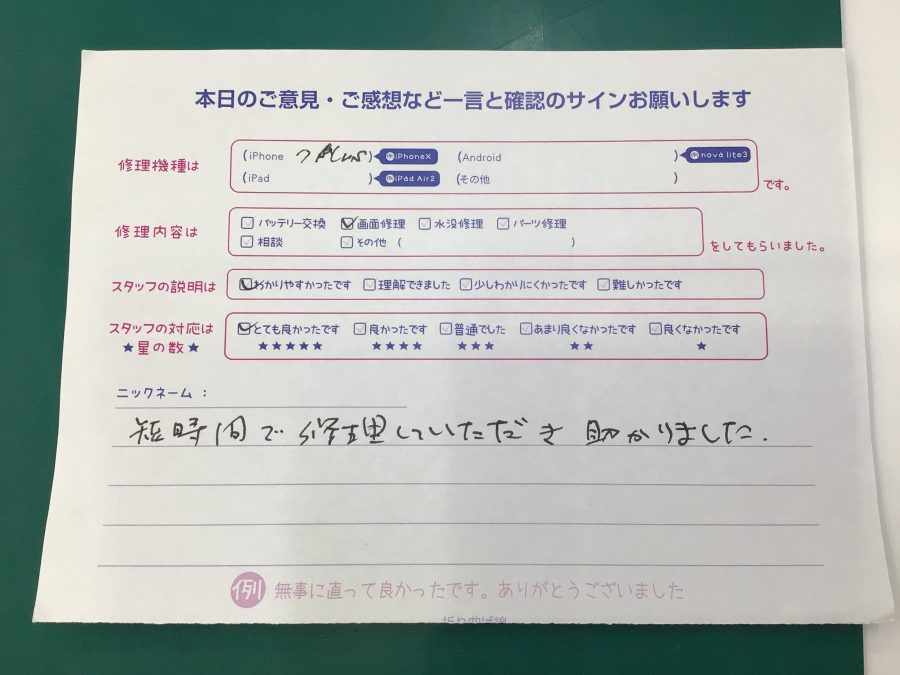 本日のご意見・ご感想など一言と確認のサインお願いします
修理機種は (iPhone 7 Plus) 例iPhoneX (Android ) 例nova lite3
(iPad ) 例iPad Air2 (その他 ) です。
修理内容は バッテリー交換 画面修理 水没修理 パーツ修理
相談 その他 ( ) をしてもらいました。
スタッフの説明は わかりやすかったです 理解できました 少しわかりにくかったです 難しかったです
スタッフの対応は とても良かったです 良かったです 普通でした あまり良くなかったです 良くなかったです
★星の数★ ★★★★★ ★★★★ ★★★ ★★ ★
ニックネーム：
短時間で修理していただき助かりました.
例 無事に直って良かったです。ありがとうございました